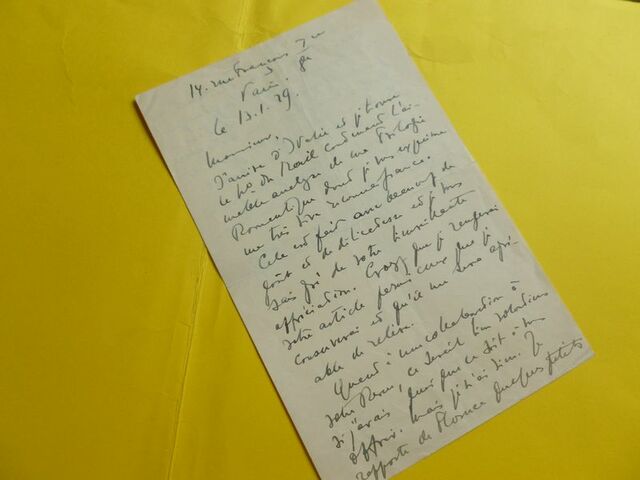 14. rue François 1er
Paris. 8e
le 13.1.29.
Monsieur,
J'arrive d'Italie et je trouve
le No du contenant l'ai-
mable analyse de ma Trilogie
Romantique dont je vous exprime
ma très vive reconnaissance.
Cela est fait avec beaucoup de
goût et de délicatesse et je vous
sais gré de votre bienveillante
appréciation. Croyez que je rangerai
votre article parmi ceux que je
conserverai et qu'il me sera agré-
able de relire.
Quand à une collaboration à
votre Revue, ce serait bien volontiers
si j'avais quoi que ce soit à vous
offrir. mais je n'ai rien. Je
rapporte de Florence quelques petits